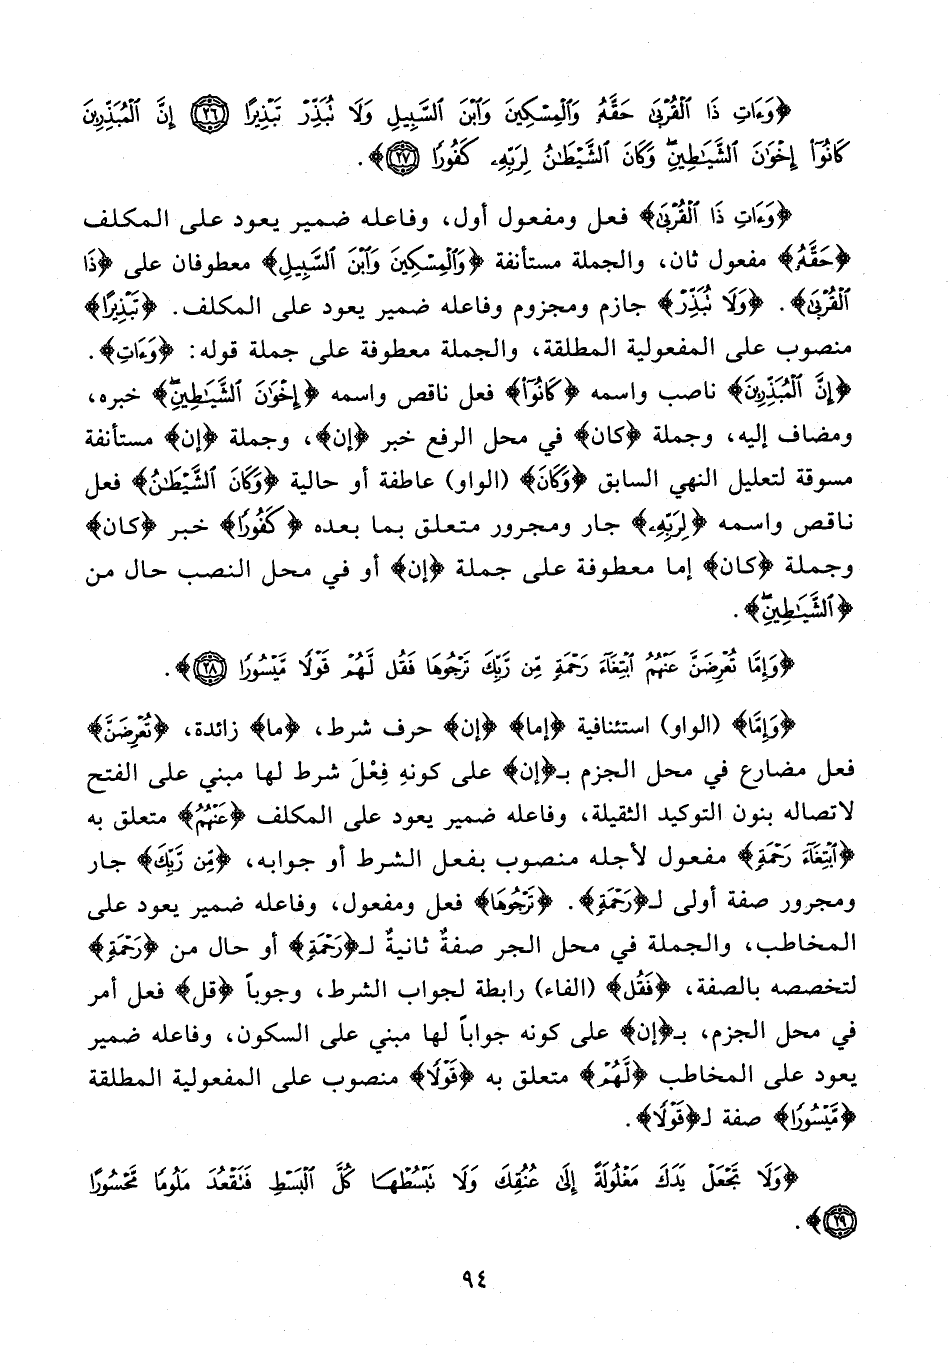 ﴿وَءَاتِ ذَا ٱلْقُرْبَىٰ حَقَّهُۥ وَٱلْمِسْكِينَ وَٱبْنَ ٱلسَّبِيلِ وَلَا تُبَذِّرْ تَبْذِيرًا ٢٦ إِنَّ ٱلْمُبَذِّرِينَ
كَانُوٓا۟ إِخْوَٰنَ ٱلشَّيَـٰطِينِ ۖ وَكَانَ ٱلشَّيْطَـٰنُ لِرَبِّهِۦ كَفُورًا ٢٧﴾.
﴿وَءَاتِ ذَا ٱلْقُرْبَىٰ﴾ فعل ومفعول أول، وفاعله ضمير يعود على المكلف
﴿حَقَّهُۥ﴾ مفعول ثان، والجملة مستأنفة ﴿وَٱلْمِسْكِينَ وَٱبْنَ ٱلسَّبِيلِ﴾ معطوفان على ﴿ذَا
ٱلْقُرْبَىٰ﴾. ﴿وَلَا تُبَذِّرْ﴾ جازم ومجزوم وفاعله ضمير يعود على المكلف. ﴿تَبْذِيرًا﴾
منصوب على المفعولية المطلقة، والجملة معطوفة على جملة قوله: ﴿وَءَاتِ﴾.
﴿إِنَّ ٱلْمُبَذِّرِينَ﴾ ناصب واسمه ﴿كَانُوٓا۟﴾ فعل ناقص واسمه ﴿إِخْوَٰنَ ٱلشَّيَـٰطِينِ ۖ﴾ خبره،
ومضاف إليه، وجملة ﴿كان﴾ في محل الرفع خبر ﴿إن﴾، وجملة ﴿إن﴾ مستأنفة
مسوقة لتعليل النهي السابق ﴿وَكَانَ﴾ (الواو) عاطفة أو حالية ﴿وَكَانَ ٱلشَّيْطَـٰنُ﴾ فعل
ناقص واسمه ﴿لِرَبِّهِۦ﴾ جار ومجرور متعلق بما بعده ﴿كَفُورًا﴾ خبر ﴿كان﴾
وجملة ﴿كان﴾ إما معطوفة على جملة ﴿إن﴾ أو في محل النصب حال من
﴿ٱلشَّيَـٰطِينِ ۖ﴾.
﴿وَإِمَّا تُعْرِضَنَّ عَنْهُمُ ٱبْتِغَآءَ رَحْمَةٍ مِّن رَّبِّكَ تَرْجُوهَا فَقُل لَّهُمْ قَوْلًا مَّيْسُورًا ٢٨﴾.
﴿وَإِمَّا﴾ (الواو) استئنافية ﴿إما﴾ ﴿إن﴾ حرف شرط، ﴿ما﴾ زائدة، ﴿تُعْرِضَنَّ﴾
فعل مضارع في محل الجزم بـ﴿إن﴾ على كونهِ فِعْلَ شرط لها مبني على الفتح
لاتصاله بنون التوكيد الثقيلة، وفاعله ضمير يعود على المكلف ﴿عَنْهُمُ﴾ متعلق به
﴿ٱبْتِغَآءَ رَحْمَةٍ﴾ مفعول لأجله منصوب بفعل الشرط أو جوابه، ﴿مِّن رَّبِّكَ﴾ جار
ومجرور صفة أولى لـ﴿رَحْمَةٍ﴾. ﴿تَرْجُوهَا﴾ فعل ومفعول، وفاعله ضمير يعود على
المخاطب، والجملة في محل الجر صفةٌ ثانيةٌ لـ﴿رَحْمَةٍ﴾ أو حال من ﴿رَحْمَةٍ﴾
لتخصصه بالصفة، ﴿فَقُل﴾ (الفاء) رابطة لجواب الشرط، وجوباً ﴿قل﴾ فعل أمر
في محل الجزم، بـ﴿إن﴾ على كونه جواباً لها مبني على السكون، وفاعله ضمير
يعود على المخاطب ﴿لَّهُمْ﴾ متعلق به ﴿قَوْلًا﴾ منصوب على المفعولية المطلقة
﴿مَّيْسُورًا﴾ صفة لـ﴿قَوْلًا﴾.
﴿وَلَا تَجْعَلْ يَدَكَ مَغْلُولَةً إِلَىٰ عُنُقِكَ وَلَا تَبْسُطْهَا كُلَّ ٱلْبَسْطِ فَتَقْعُدَ مَلُومًا مَّحْسُورًا
٢٩﴾.
٩٤